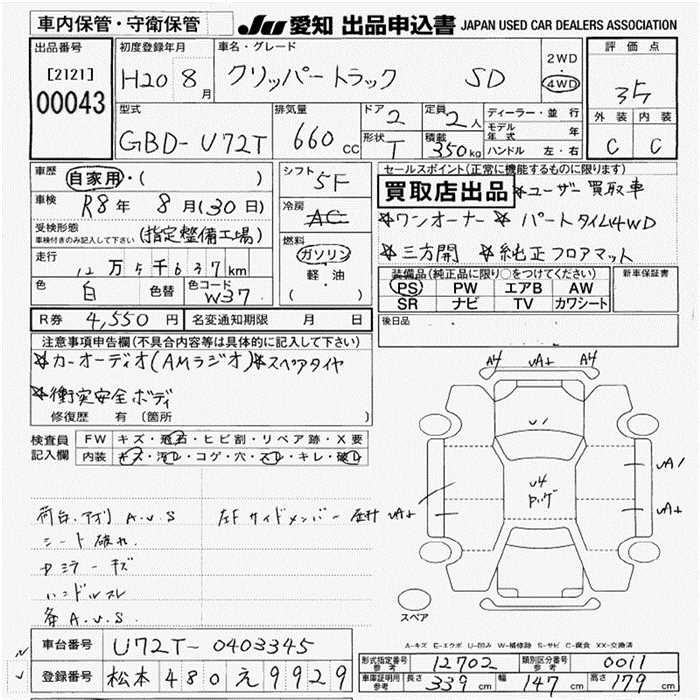 車内保管・守衛保管
JU 愛知 出品申込書 JAPAN USED CAR DEALERS ASSOCIATION
出品番号
[2121]
00043
初度登録年月
H20 8月
車名・グレード
クリッパートラック SD
2WD
・
4WD
評価点
3.5
外装 内装
C C
型式
GBD-U72T
排気量
660cc
ドア 2
形状 T
定員 2人
積載 350kg
ディーラー・並行
モデル年式 年
ハンドル 左・右
車歴 自家用・( )
車検 R8年 8月(30日)
受検形態 (指定整備工場)
車検付きのみ記入して下さい
走行 12万5千637km
色 白 色替 色コード W37
シフト 5F
冷房 AC
燃料
ガソリン
軽油
( ・ )
セールスポイント(正常に機能するものに限ります)
買取店出品 ☆ユーザー買取車
☆ワンオーナー ☆パートタイム4WD
☆三方開 ☆純正フロアマット
装備品(純正品に限り○をつけてください)
PS PW エアB AW
SR ナビ TV カワシート
新車保証書
後日品
R券 4,550円 名変通知期限 月 日
注意事項申告欄(不具合内容等は具体的に記入して下さい)
☆カーオーディオ(AMラジオ)☆スペアタイヤ
☆衝突安全ボディ
修復歴 有 (箇所 )
検査員記入欄
FW キズ・飛石・ヒビ割・リペア跡・X要
内装 キズ・汚レ・コゲ・穴・スレ・キレ・破レ
荷台、アオリ A.U.S 左Fサイドメンバー
シート破れ
キズ
ハンドルスレ
A.U.S.
A4 UA+ A4
U1
U4
UA1
UA+
UA+
スペア
A-キズ E-エクボ U-凹み W-補修跡 S-サビ C-腐食 XX-交換済
車台番号 U72T-0403345
登録番号 松本 480 え 9929
形式指定番号 参考 12702 類別区分番号 参考 0011
車庫証明用 参考 長さ 339cm 幅 147cm 高さ 179cm